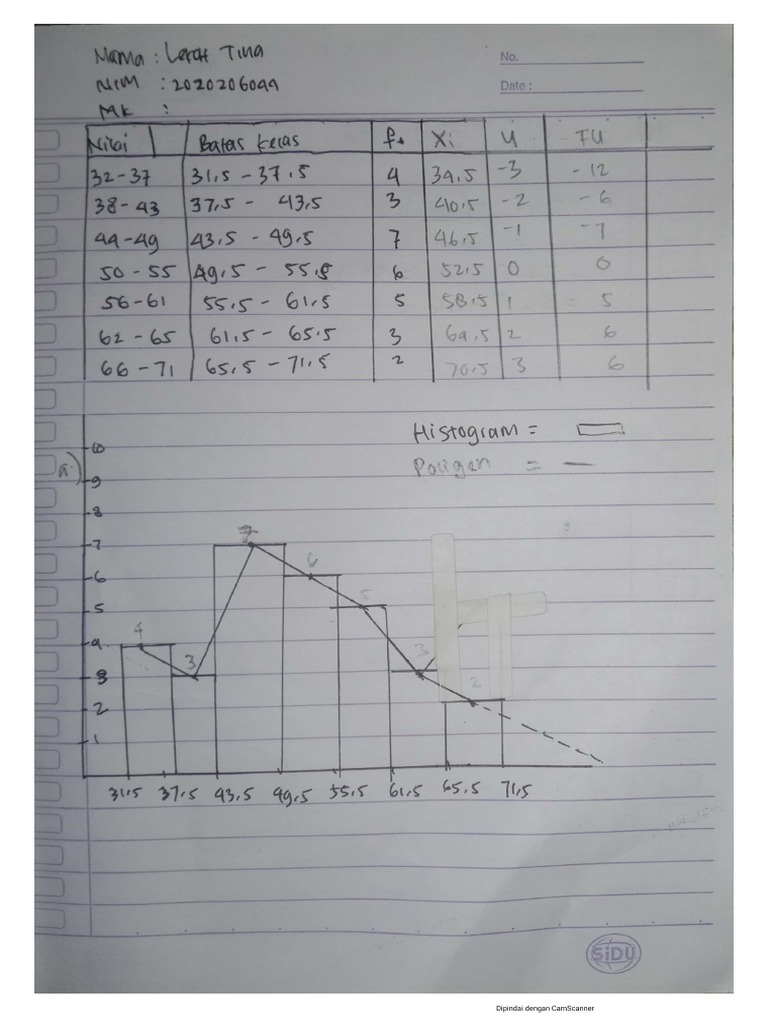 Nama : Lerat Tina
No.
NIM : 2020206049
Date :
MK :
Nilai Batas kelas f. Xi U FU
32-37 31,5 - 37,5 4 34,5 -3 -12
38-43 37,5 - 43,5 3 40,5 -2 -6
44-49 43,5 - 49,5 7 46,5 -1 -7
50-55 49,5 - 55,5 6 52,5 0 0
56-61 55,5 - 61,5 5 58,5 1 5
62-65 61,5 - 65,5 3 64,5 2 6
66-71 65,5 - 71,5 2 70,5 3 6
Histogram =
Poligen =
a)
10
9
8
7 7
6 6
5 5
4 4
3 3 3
2 2
1
31,5 37,5 43,5 49,5 55,5 61,5 65,5 71,5
SiDU
Dipindai dengan CamScanner